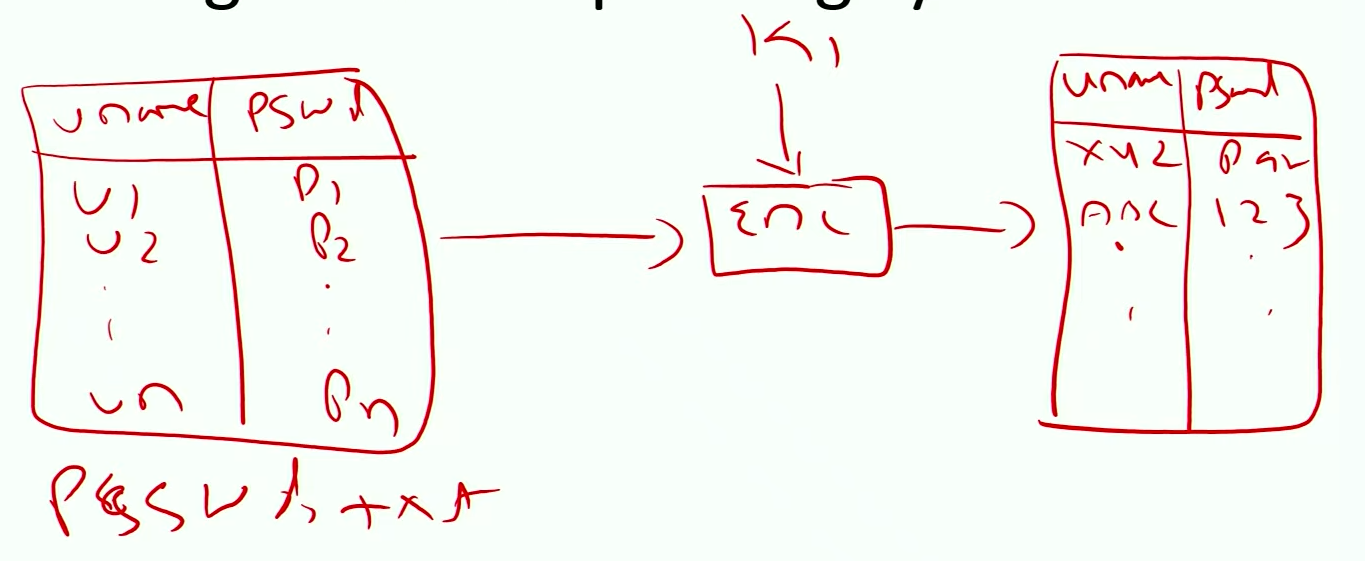 K1
uname pswd
U1 P1
U2 P2
.
.
Un Pn
Passwd.txt
Enc
uname pswd
XYZ Par
ABC 123
.
.